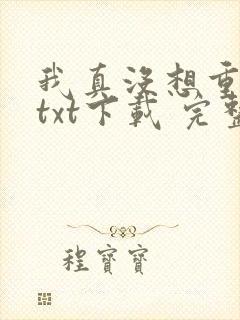 我真没想重
txt下载 完整
程寶寶